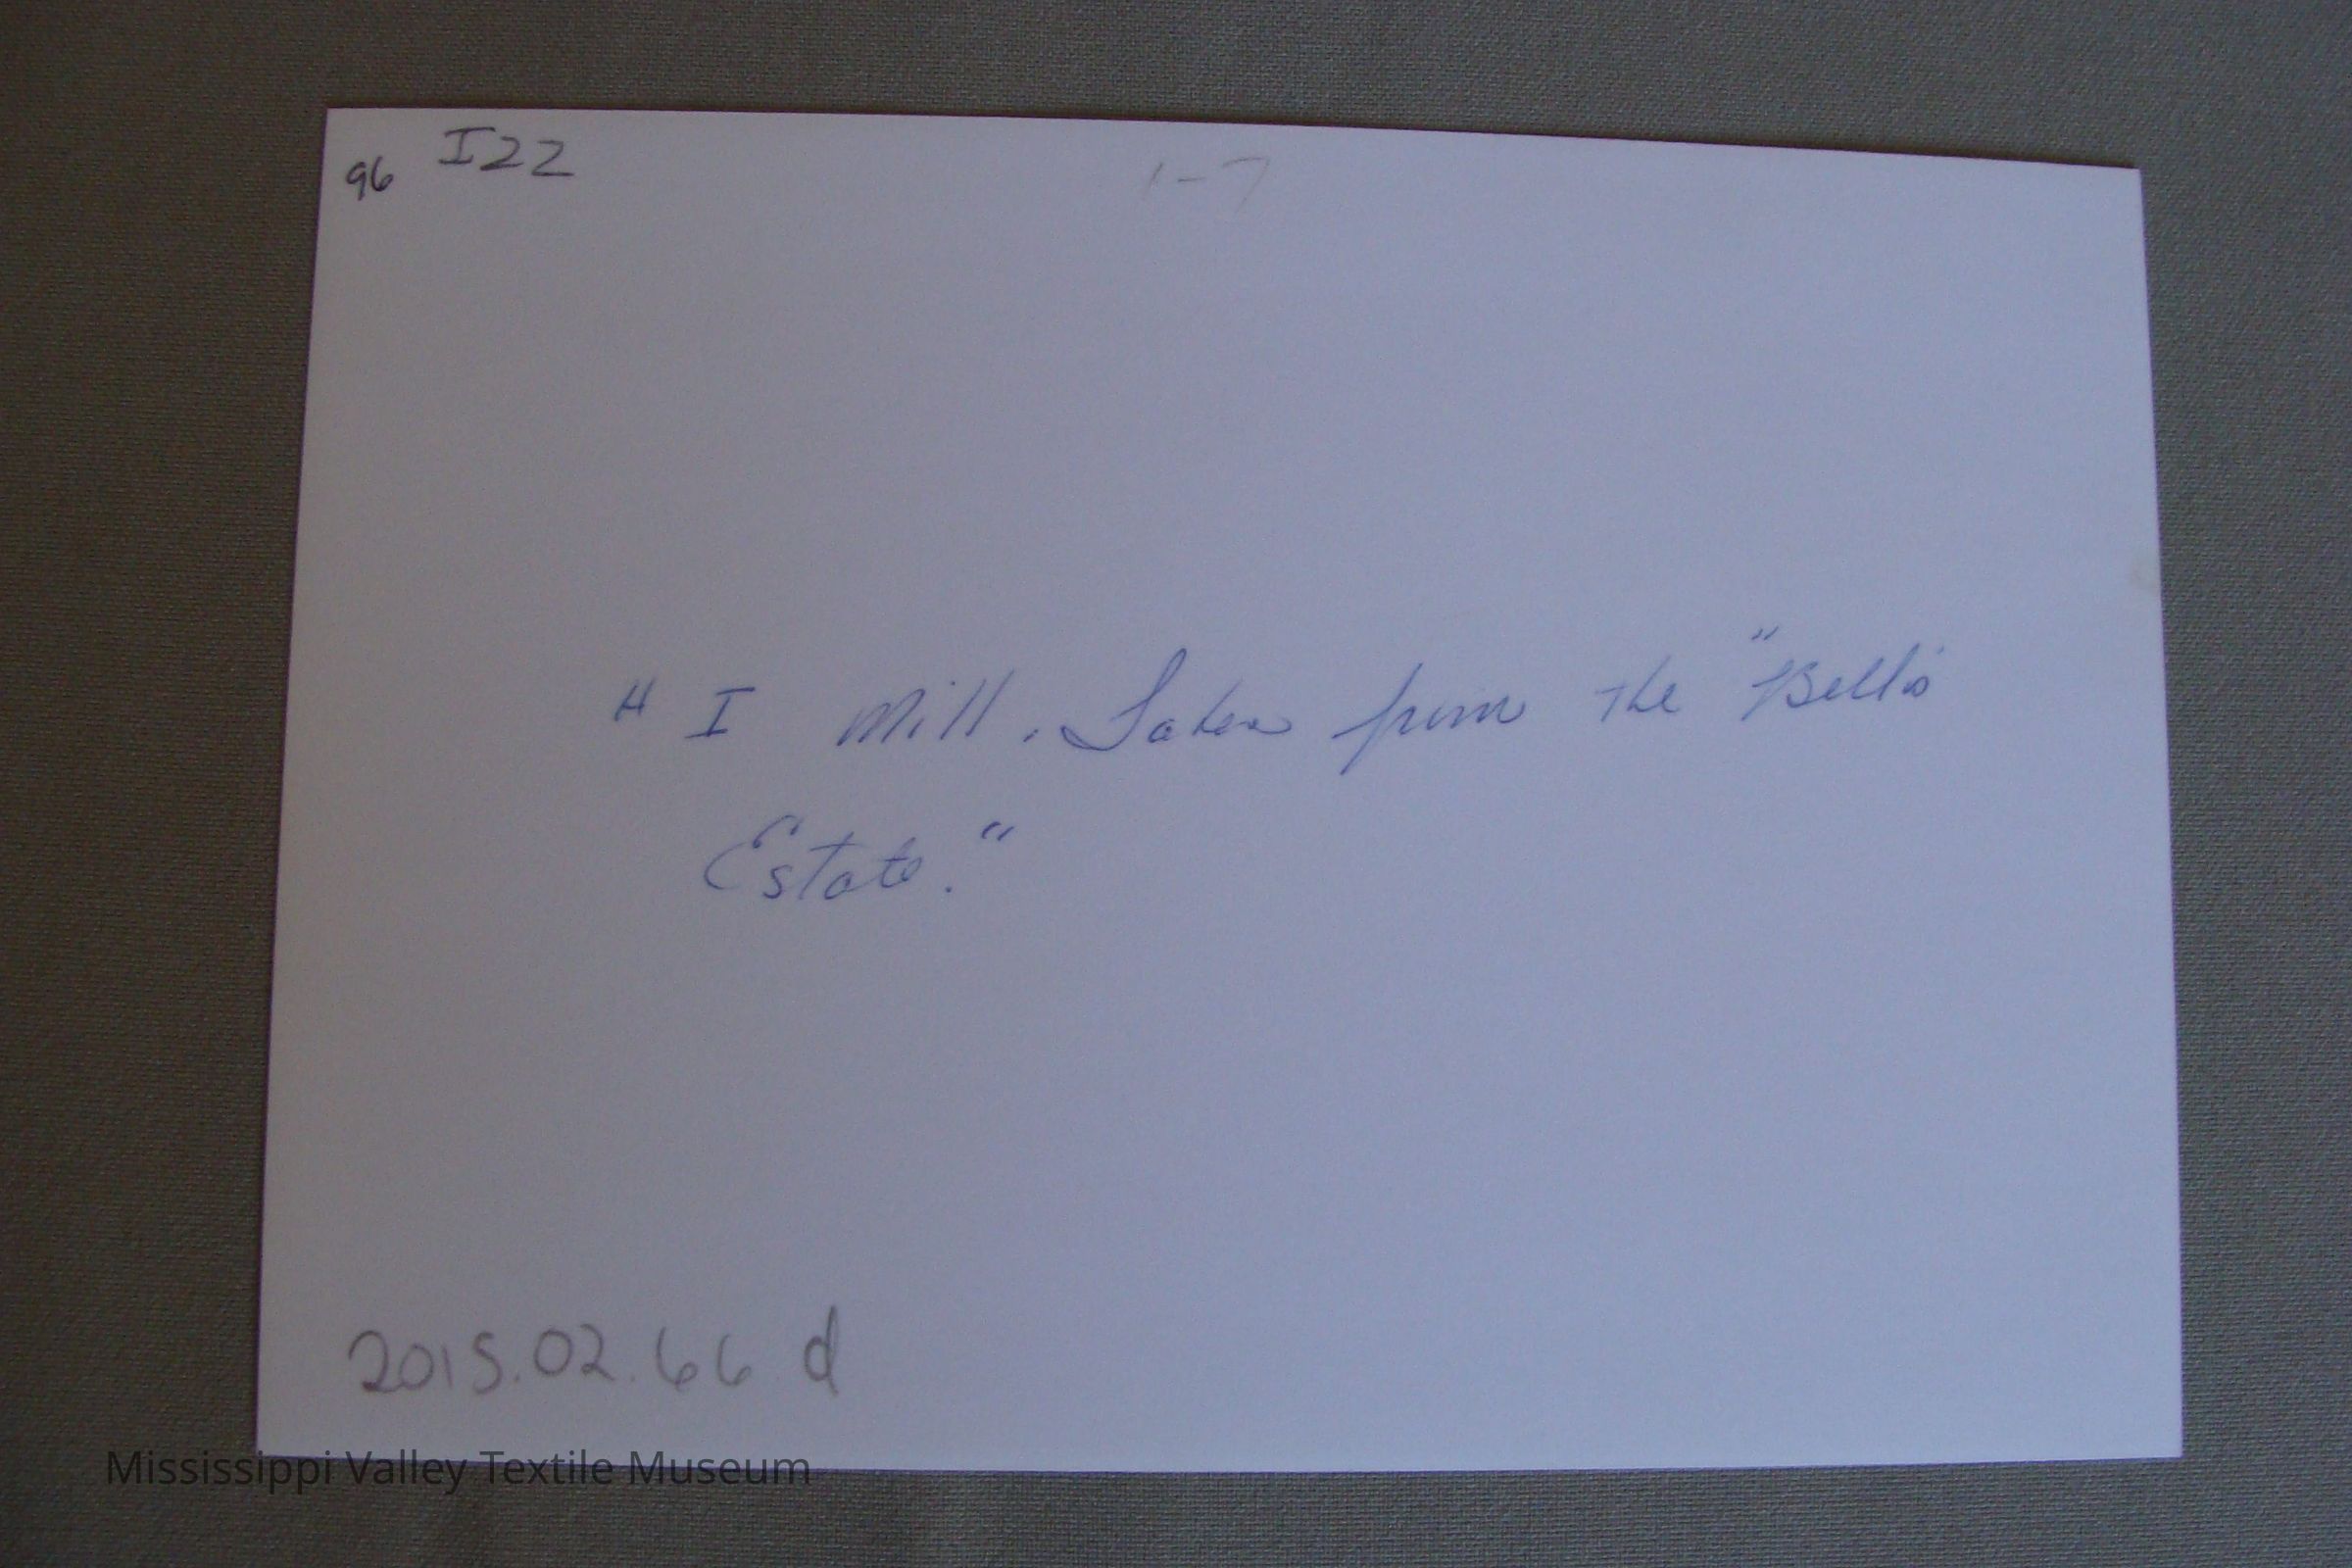 96 I22 1-7
# I Mill. Taken from the "Bell's
Estate."
2015.02.66 d
Mississippi Valley Textile Museum